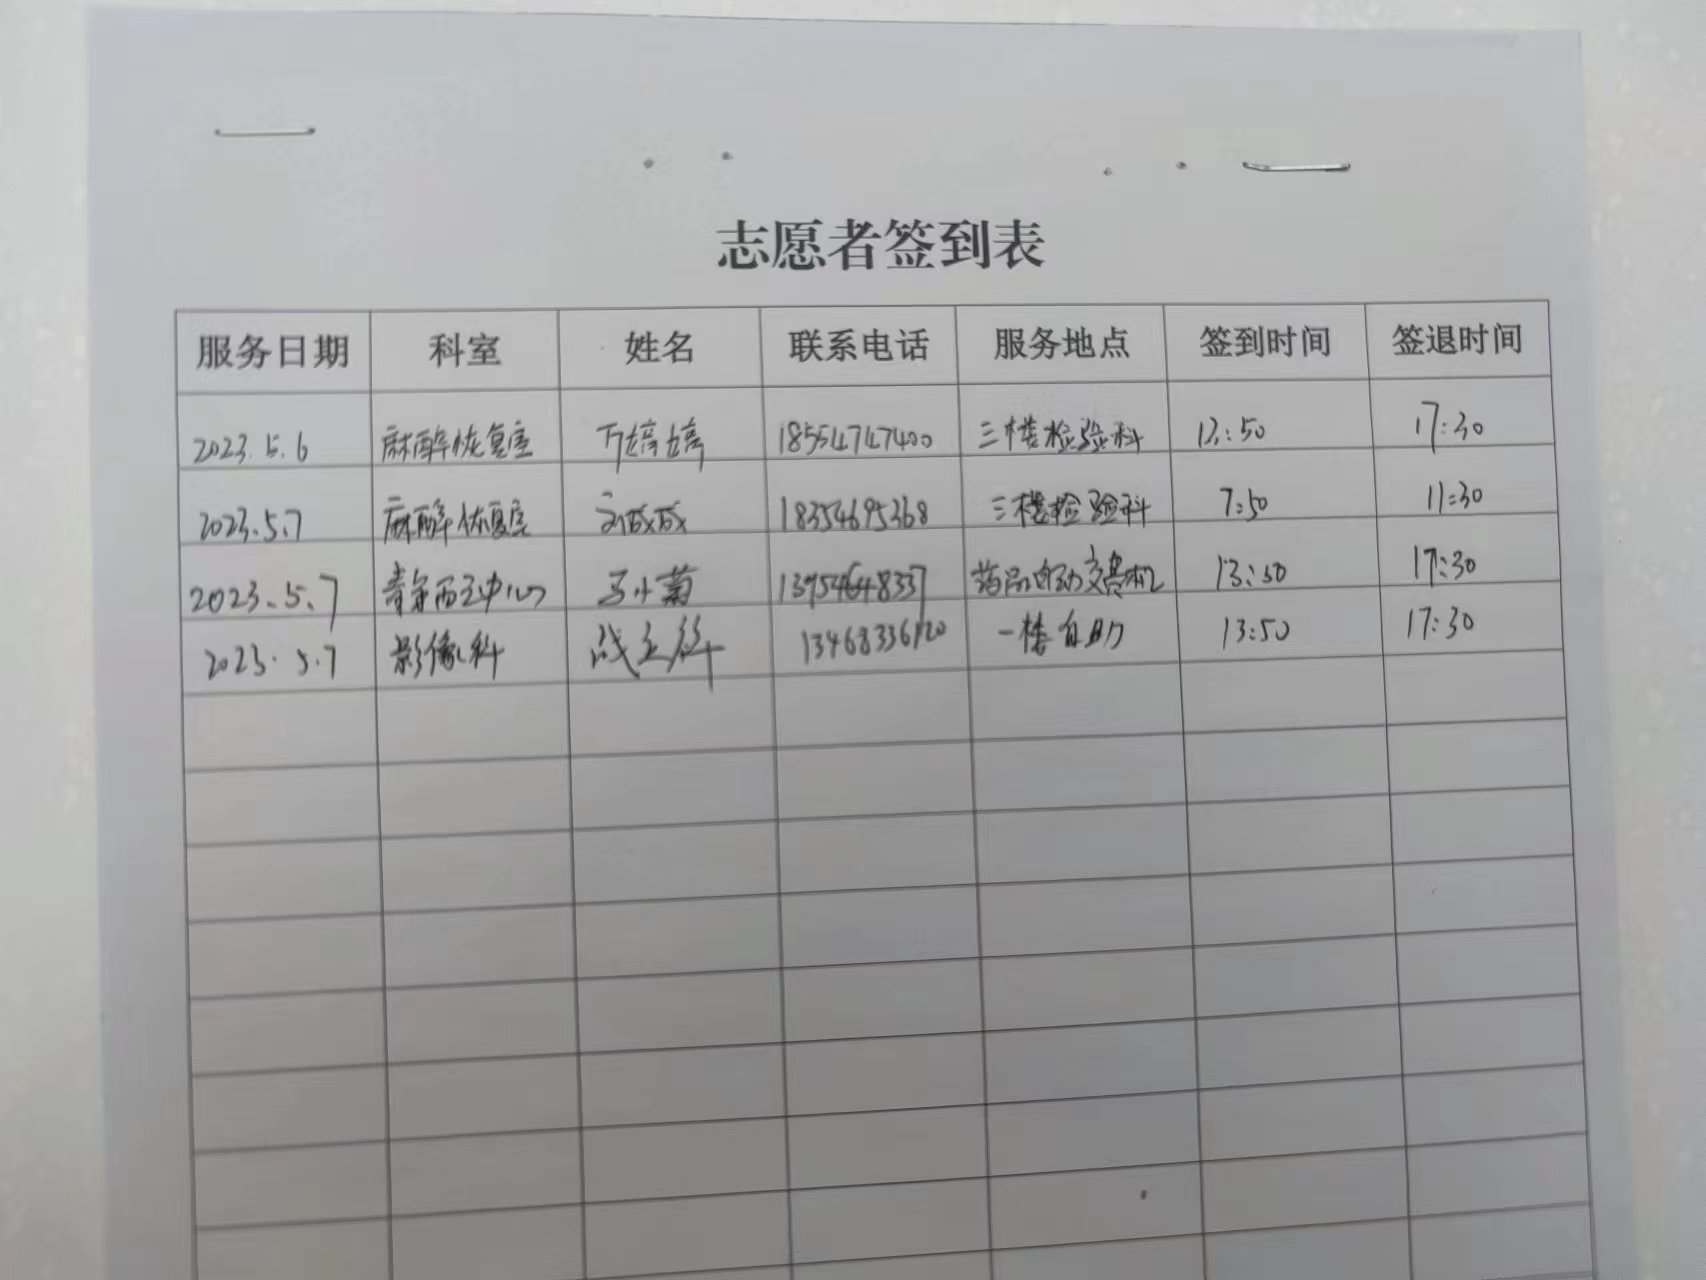 志愿者签到表
服务日期 科室 姓名 联系电话 服务地点 签到时间 签退时间
2023.5.6 麻醉恢复室 万婷婷 18554747400 三楼检验科 13:50 17:30
2023.5.7 麻醉恢复室 刘成成 18354695368 三楼检验科 7:50 11:30
2023.5.7 静配中心 马小菊 13954648337 药品自动交费机 13:50 17:30
2023.5.7 影像科 战 13468336120 一楼自助 13:50 17:30